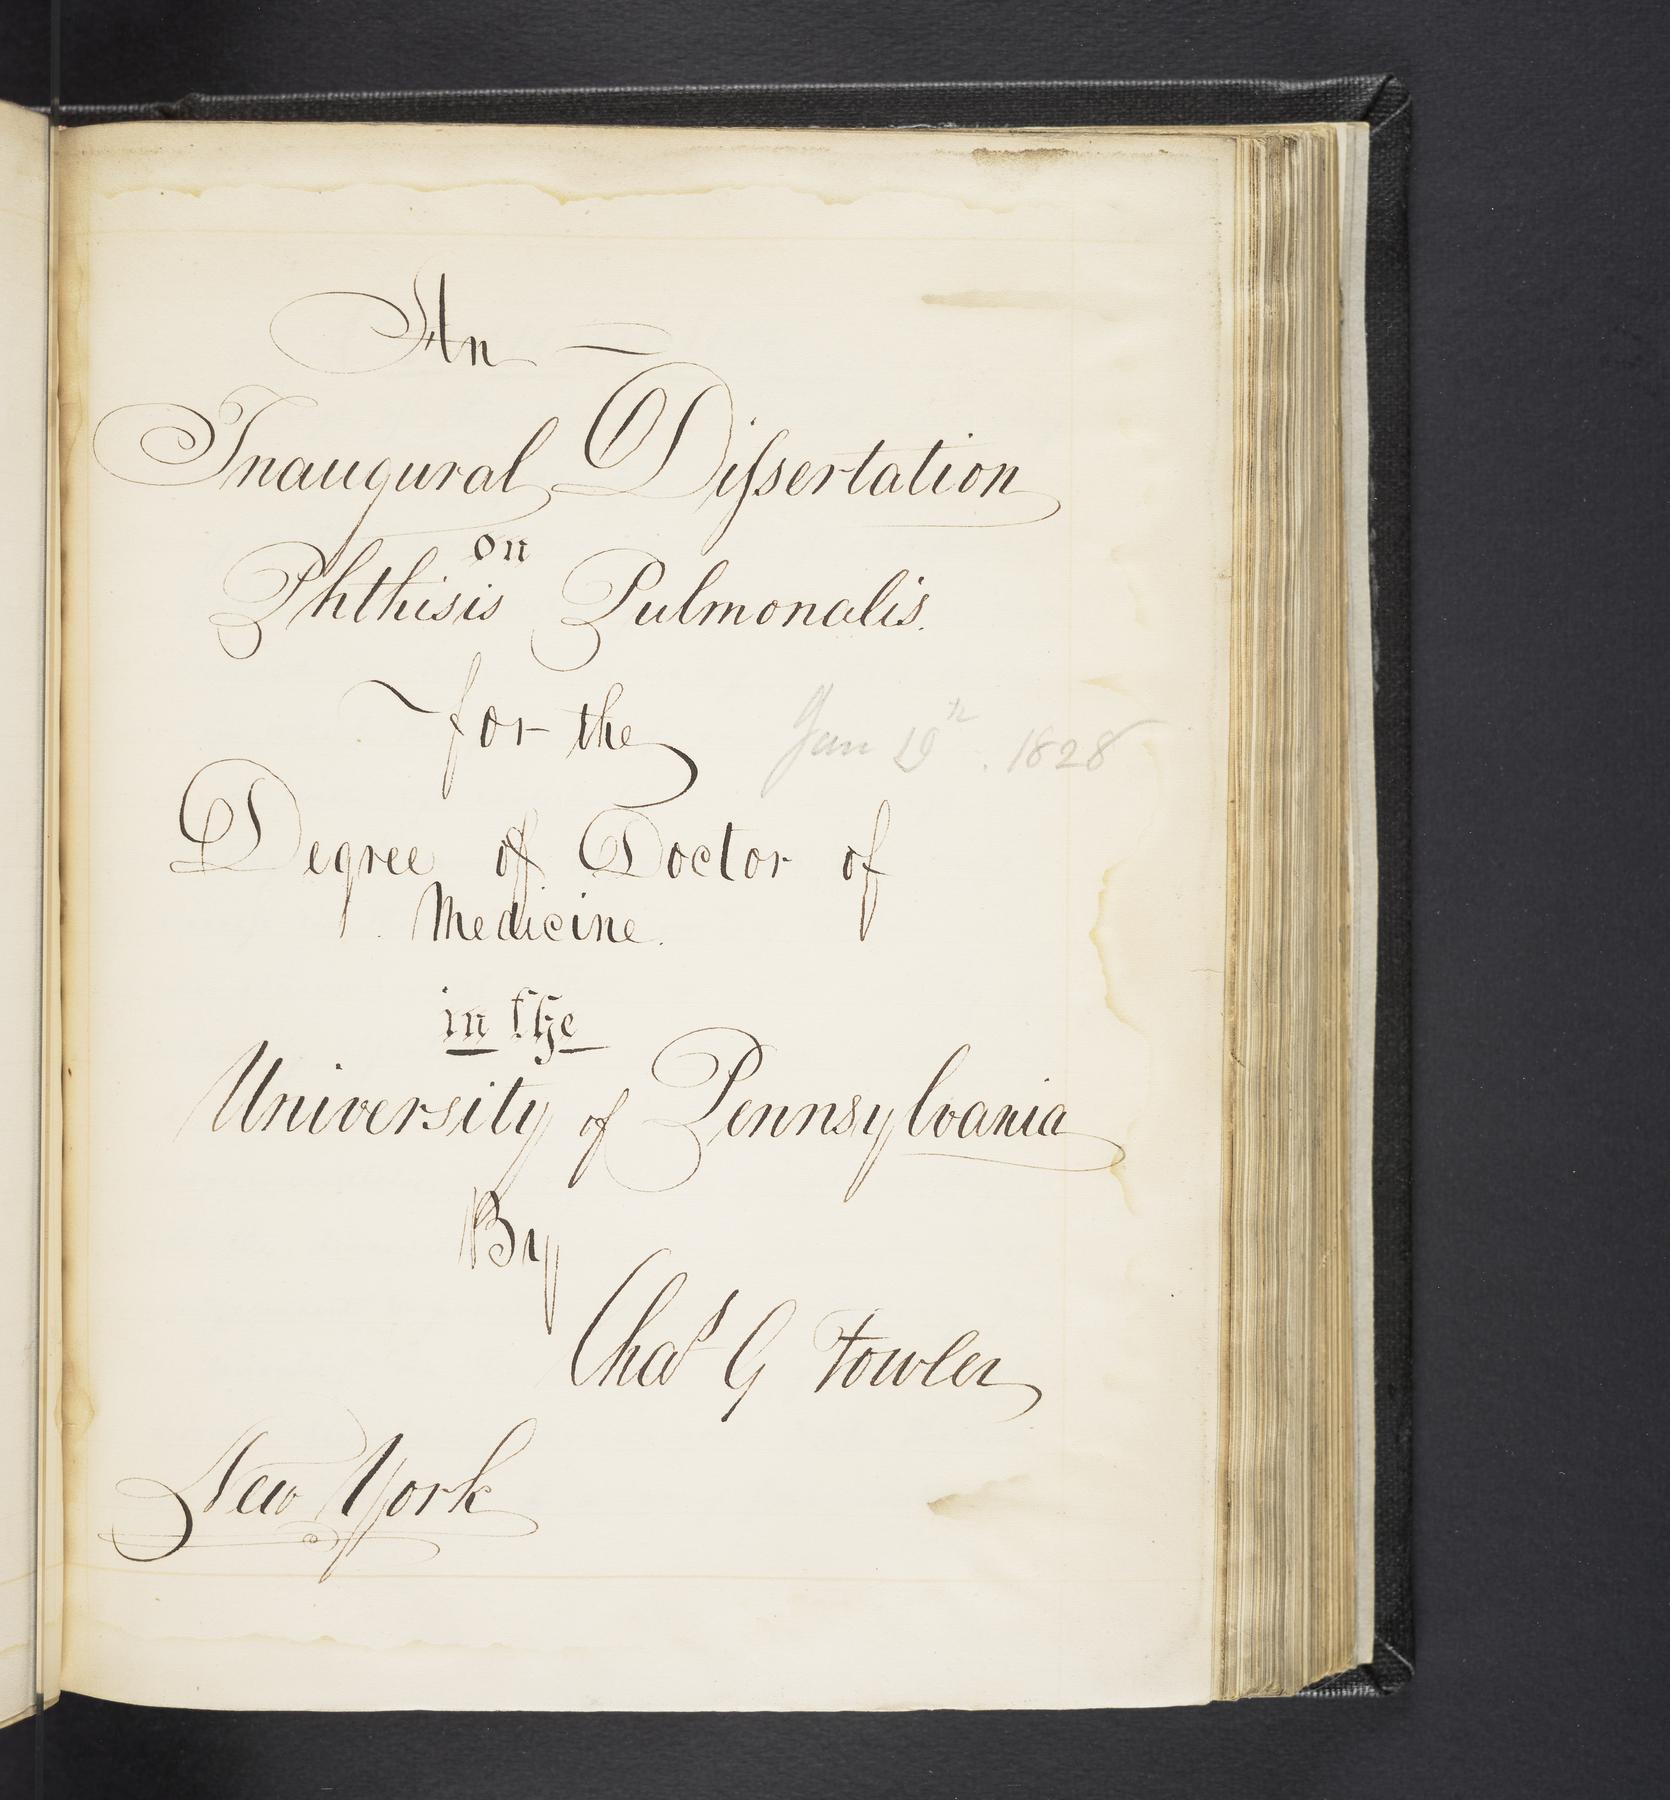 An
Inaugural Dissertation
on
Phthisis Pulmonalis.
for the
Jan 19th. 1828
Degree of Doctor of
Medicine.
in the
University of Pennsylvania
By
Chas G Fowler
New York